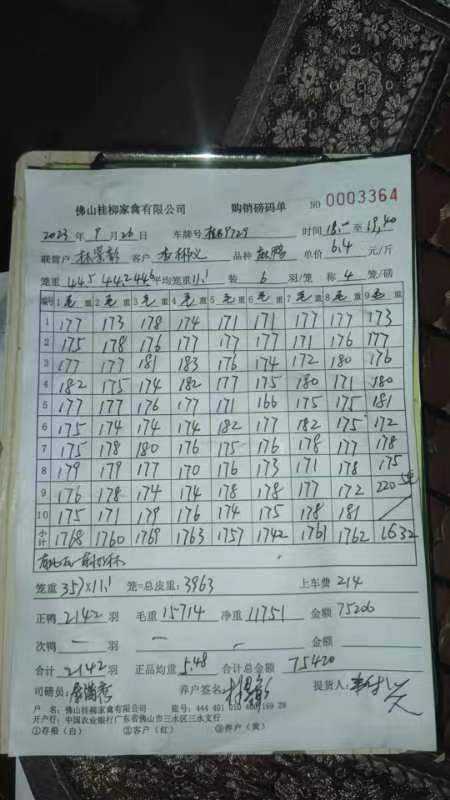 佛山桂柳家禽有限公司 购销磅码单 NO 0003364
2023 年 9 月 26 日 车牌号 时间 18:00 至 19:40
联营户 客户 品种 单价 6.4 元/斤
笼重 44.5 44.2 44.6 平均笼重 11.1 装 6 羽/笼 称 4 笼/磅
编号 1 毛 重 2 毛 重 3 毛 重 4 毛 重 5 毛 重 6 毛 重 7 毛 重 8 毛 重 9 毛 重
1 177 173 178 174 171 171 177 177 173
2 175 178 176 177 177 177 171 176 177
3 177 177 181 183 176 174 172 180 176
4 182 175 174 182 177 175 180 171 180
5 177 177 176 177 171 166 175 175 181
6 175 174 174 174 182 177 182 175 172
7 175 178 180 176 175 176 178 177 178
8 179 179 177 170 176 173 171 178 175
9 176 178 174 174 178 178 177 172 220
10 175 171 179 176 174 175 178 181
小计 1768 1760 1769 1763 1757 1742 1761 1762 1632
笼重 357×11.1 笼=总皮重: 3963 上车费 214
正鸭 2142 羽 毛重 15714 净重 11751 金额 75206
次鸭 — 羽 — — 金额
合计 2142 羽 正品均重 5.48 合计总金额 75420
司磅员: 养户签名: 提货人:
户 名: 佛山桂柳家禽有限公司 账号: 444 491 010 400 169 28
开户行: 中国农业银行广东省佛山市三水区三水支行
①存根(白) ②客户(红) ③养户(黄)